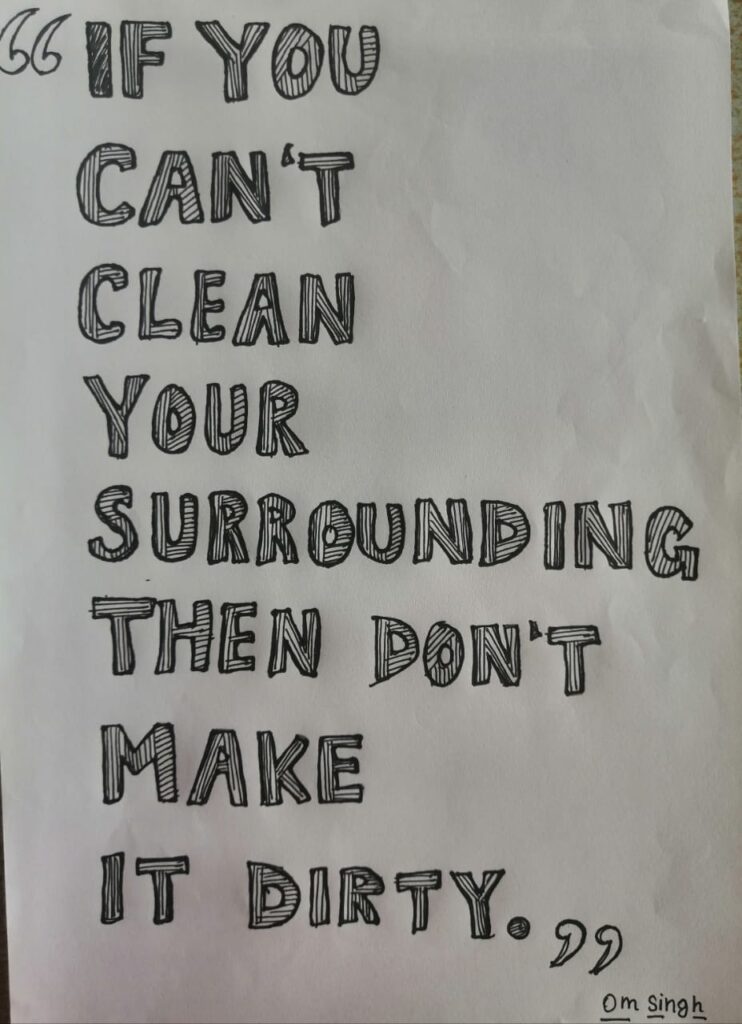 “IF YOU
CAN'T
CLEAN
YOUR
SURROUNDING
THEN DON'T
MAKE
IT DIRTY.”
Om Singh